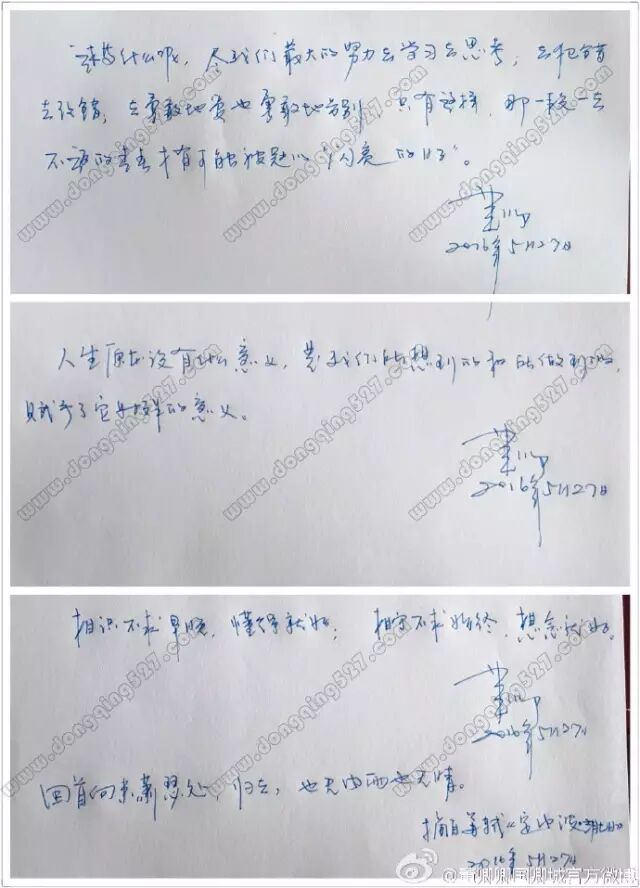 尽我们最大的努力去学习去思考,去犯错
去改错,去勇敢地爱也勇敢地告别 只有这样,那一段一去
不返的青春才有可能被冠以“闪亮的日子”。
2016年5月27日
人生原本没有什么意义,是我们所想到的和所做到的,
赋予了它这样的意义。
2016年5月27日
相识不求早晚,懂得就好; 相守不求始终,想念就好。
2016年5月27日
回首向来萧瑟处,归去,也无风雨也无晴。
摘自苏轼《定风波
2016年5月27日
www.dongqing527.com
国卿城官方微博